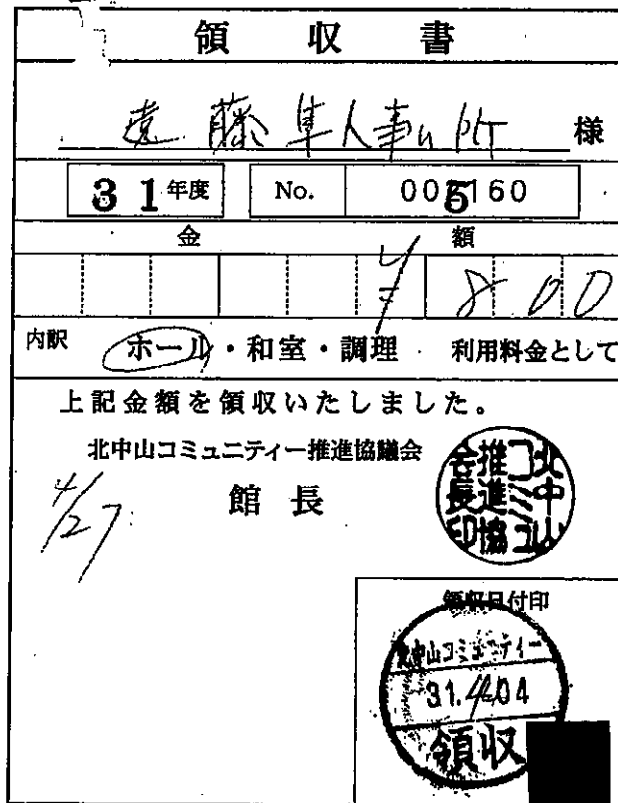 領 収 書
遠藤隼人事ム所 様
31年度 No. 005160
金 額
¥ 800
内訳 ホール・和室・調理 利用料金として
上記金額を領収いたしました。
北中山コミュニティー推進協議会
館 長
4/27
北中山コミ推進協会長印
領収日付印
北中山コミュニティー
31.4.04
領収